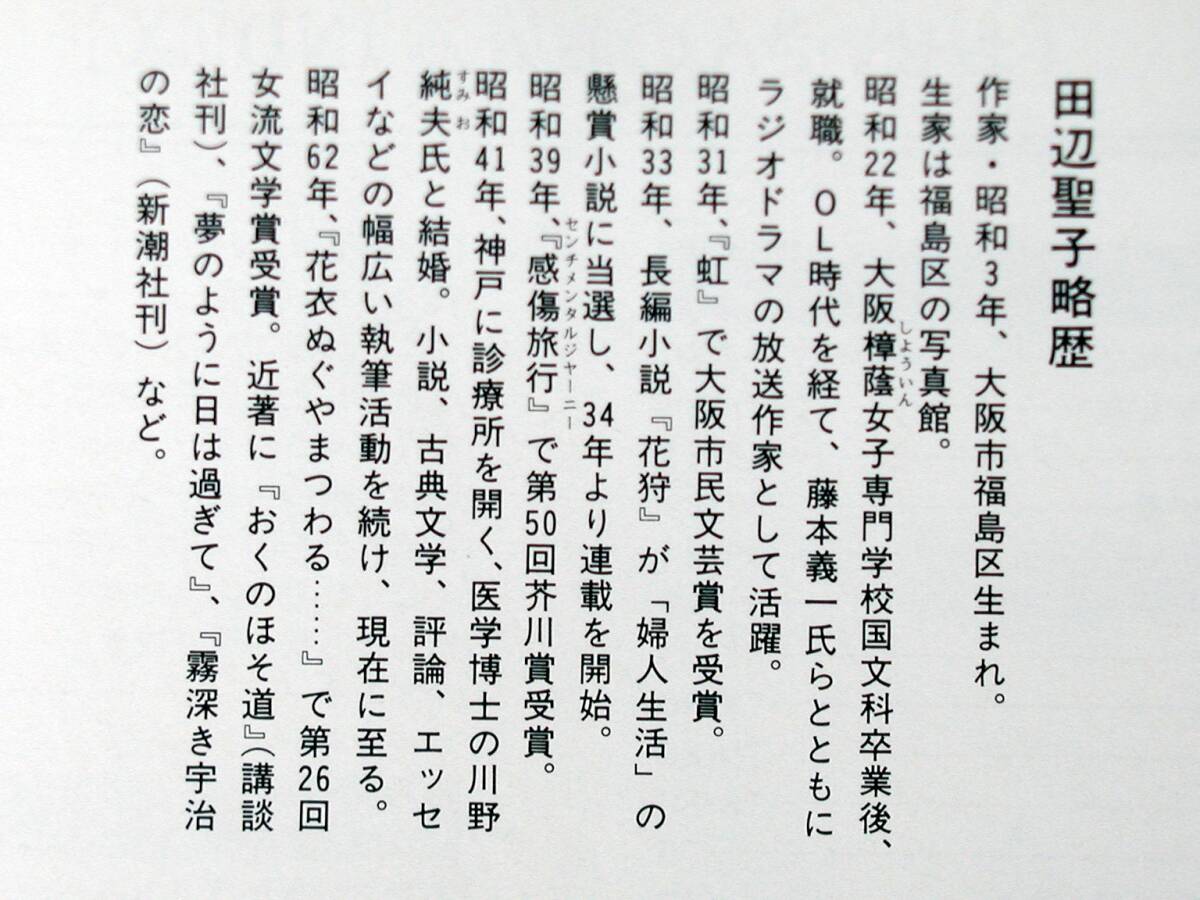 田辺聖子略歴
作家・昭和3年、大阪市福島区生まれ。
生家は福島区の写真館。
昭和22年、大阪樟蔭女子専門学校国文科卒業後、
しょういん
就職。OL時代を経て、藤本義一氏らとともに
ラジオドラマの放送作家として活躍。
昭和31年、『虹』で大阪市民文芸賞を受賞。
昭和33年、長編小説『花狩』が「婦人生活」の
懸賞小説に当選し、34年より連載を開始。
昭和39年、『感傷旅行』で第50回芥川賞受賞。
センチメンタルジャーニー
昭和41年、神戸に診療所を開く、医学博士の川野
純夫氏と結婚。小説、古典文学、評論、エッセ
すみお
イなどの幅広い執筆活動を続け、現在に至る。
昭和62年、『花衣ぬぐやまつわる……』で第26回
女流文学賞受賞。近著に『おくのほそ道』(講談
社刊)、『夢のように日は過ぎて』、『霧深き宇治
の恋』(新潮社刊)など。